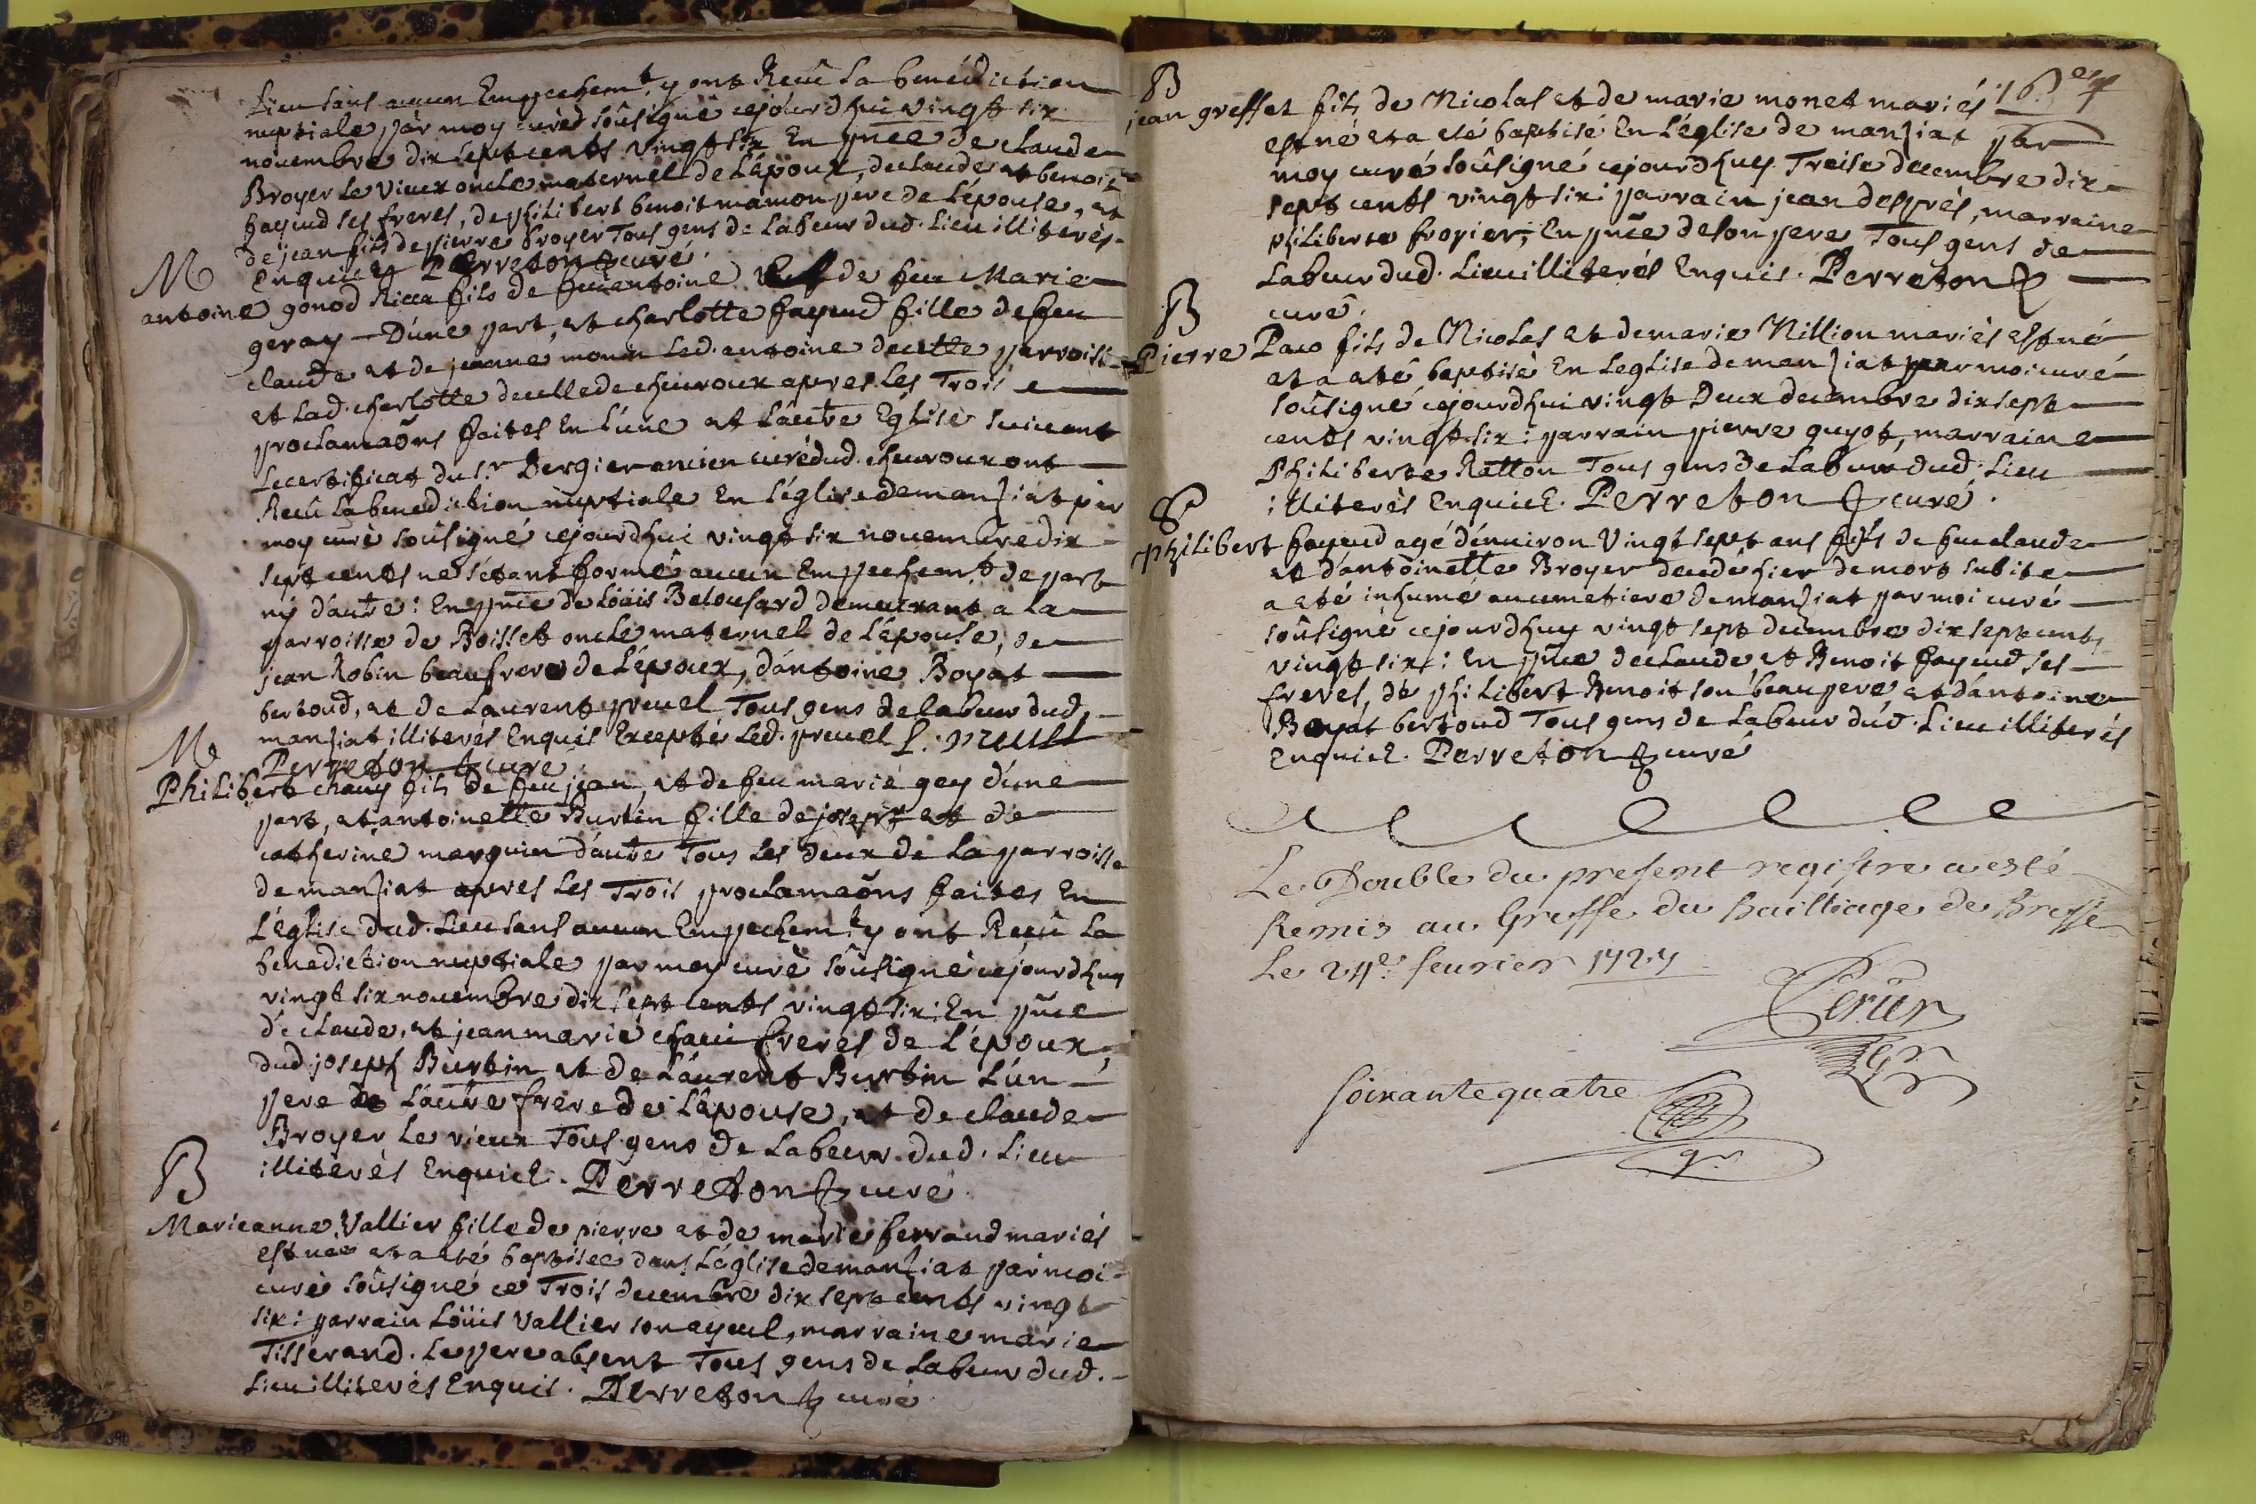 Lieu sans aucun Empechem.t y ont Reçu la benédiction
nuptiale par moy curé soûsigné cejourdhui vingt six
novembre dix sept cents vingt six En pñce de claude
Broyer le vieux oncle maternel de L'époux, de claude et benoit
fayend ses freres, de philibert benoit mamon pere de L'épouse, et
de jean fils de pierre broyer Tous gens de Labeur dud. Lieu illiterés
Enquis Perreton curé.
M
antoine gonod Ricca fils de feu antoine et de feu Marie
geray D'une part, et charlotte fayend fille de feu
claude et de jeanne monin Led. antoine de cette parroisse
et Lad. charlotte de celle de chevroux apres Les Trois
proclamaõns faites En L'une et L'autre Eglise suivant
Le certificat du s.r Bergier ancien curé dud. chevroux ont
Reçû La benediction nuptiale En L'église de manziat par
moy curé soûsigné cejourdhui vingt six novembre dix
sept cents ne s'étant formé aucun Empechem.t de part
ny d'autre : En pñce de Loüis Belousard demeurant a La
parroisse de Boisset oncle maternel de L'épouse, de
jean Robin beaufrere de L'époux, d'antoine Boyat
bertoud, et de Laurent pruel Tous gens de labeur dud.
manziat illiterés Enquis Excepté Led. pruel L. pruel
Perreton curé
M
Philibert chany fils de feu jean, et de feu marie gey d'une
part, et antoinette Burtin fille de joseph et de
catherine marquin d'autre Tous Les deux de La parroisse
de manziat apres Les Trois proclamaõns faites En
L'église dud. Lieu sans aucun Empechem.t y ont Reçû La
benediction nuptiale par moy curé soûsigné cejourdhuy
vingt six novembre dix sept cents vingt six : En pñce
de claude, et jean marie chani freres de L'époux,
dud. joseph Burtin et de Laurent Burtin L'un
pere de L'autre frere de L'épouse, et de claude
Broyer Le vieux Tous gens de Labeur dud. Lieu
illiterés Enquis. Perreton curé
B
Marieanne Vallier fille de pierre et de marie ferrand mariés
est née et a été baptisée dans L'église de manziat par moi
curé soûsigné ce Trois decembre dix sept cents vingt
six : parrain Loüis Vallier son ayeul, marraine marie
Tisserand. Le pere absent Tous gens de Labeur dud.
Lieu illiterés Enquis. Perreton curé
B
jean greffet fils de Nicolas et de marie monet mariés
est né et a eté baptisé En L'église de manziat par
moy curé soûsigné cejourdhuy Treise decembre dix
sept cents vingt six : parrain jean després, marraine
philiberte froyier, En pñce de son pere Tous gens de
Labeur dud. Lieu illiterés Enquis. Perreton
curé.
B
Pierre Paco fils de Nicolas et de marie Nillion mariés est né
et a eté baptisé En Leglise de manziat par moi curé
soûsigné cejourdhui vingt Deux decembre dix sept
cents vingt six : parrain pierre guyot, marraine
Philiberte Ratton Tous gens de Labeur dud. Lieu
illiterés Enquis. Perreton curé.
S
philibert fayend agé d'environ Vingt sept ans fils de feu claude
et d'antoinette Broyer decedé hier de mort subite
a eté inhumé au cimetiere de manziat par moi curé
soûsigné cejourdhuy vingt sept decembre dix sept cents
vingt six : En pñce de claude et Benoit fayend ses
freres, de philibert Benoit son beaupere et d'antoine
Boyat bertoud Tous gens de Labeur dud. Lieu illiterés
Enquis. Perreton curé
Le Double du present registre a esté
Remis au Greffe du Bailliage de Bresse
Le 24e. feurier 1727
Perier
soixante quatre